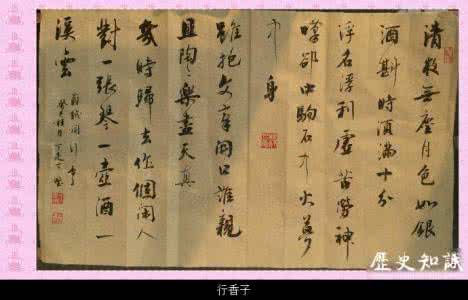 清夜無塵月色如銀
酒斟時須滿十分
浮名浮利虛苦勞神
嘆郤中駒石中火夢
中身
雖抱文章開口誰親
且陶々樂盡天真
幾時歸去作個閒人
對一張琴一壺酒一
溪雲
歷史知識
行香子